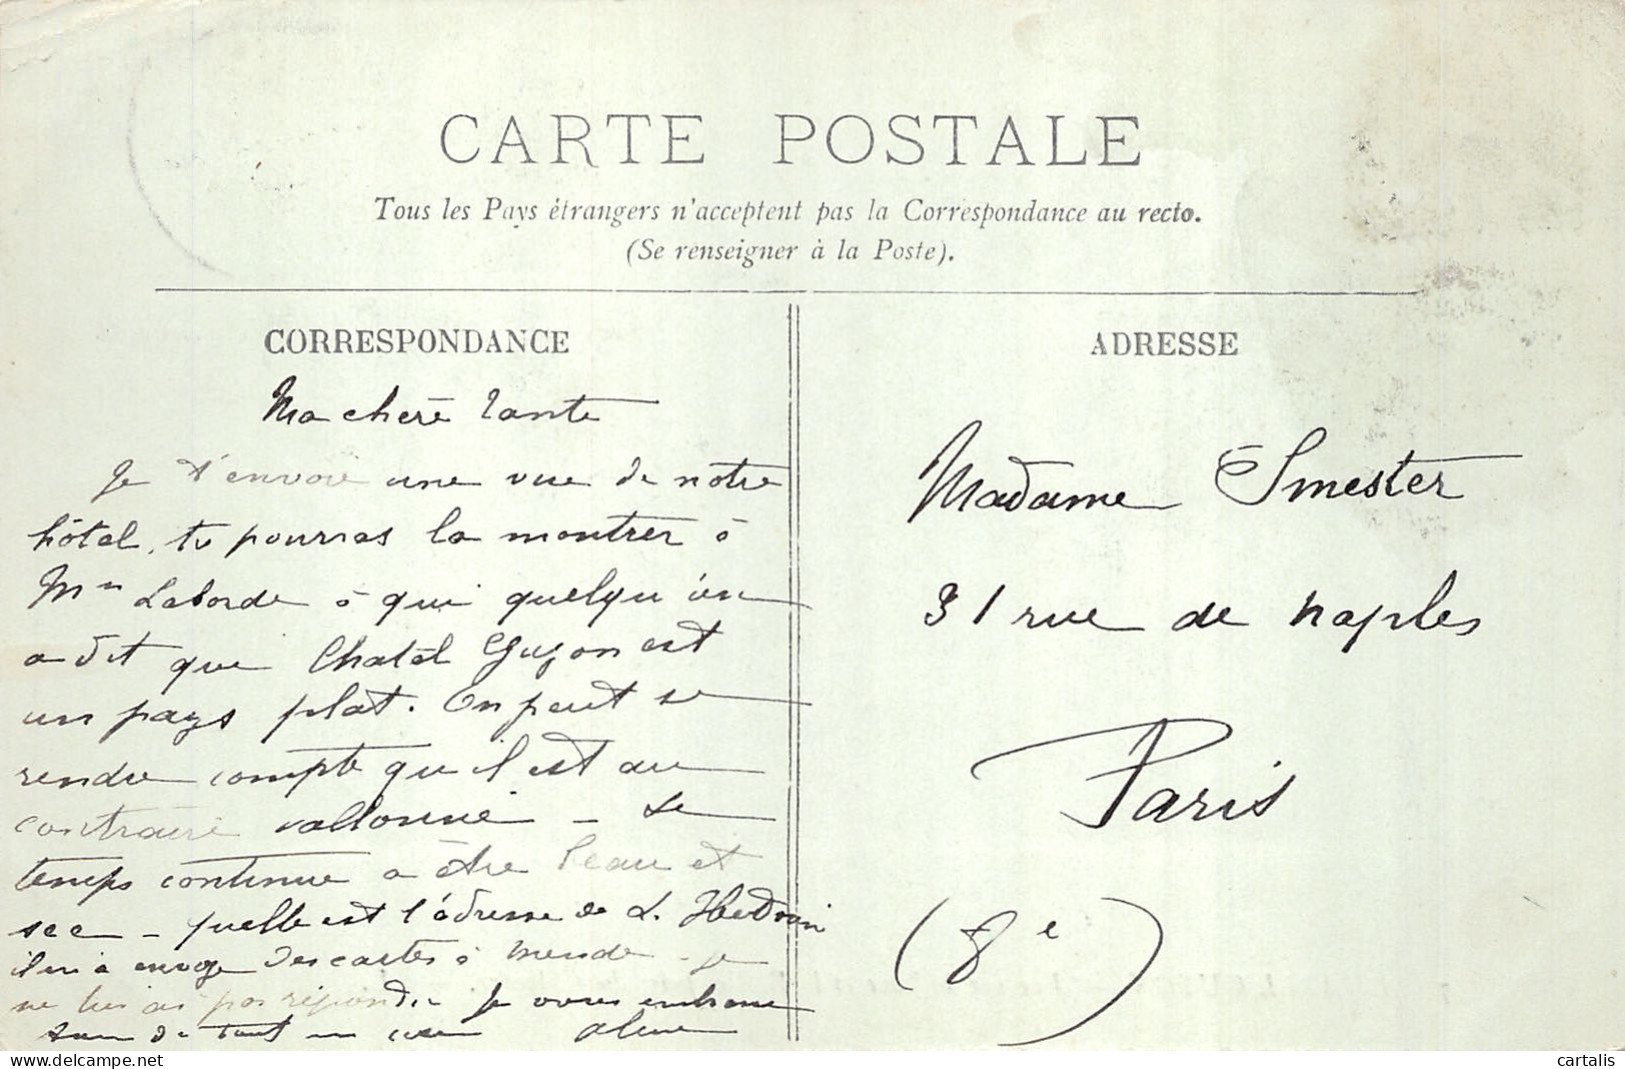 CARTE POSTALE
Tous les Pays étrangers n'acceptent pas la Correspondance au recto.
(Se renseigner à la Poste).
CORRESPONDANCE
Ma chère tante
Je t'envoie une vue de notre
hôtel, tu pourras la montrer à
Mme Laborde à qui quelqu'un
a dit que Chatel Guyon est
un pays plat. On peut se
rendre compte qu'il est au
contraire vallonné - Le
temps continue a être beau et
sec - quelle est l'adresse de L.
il m'a envoyé des cartes à Mende - je
ne lui ai pas répondu Je vous embrasse
de tout
ADRESSE
Madame Smester
31 rue de Naples
Paris
(8e)
cartalis